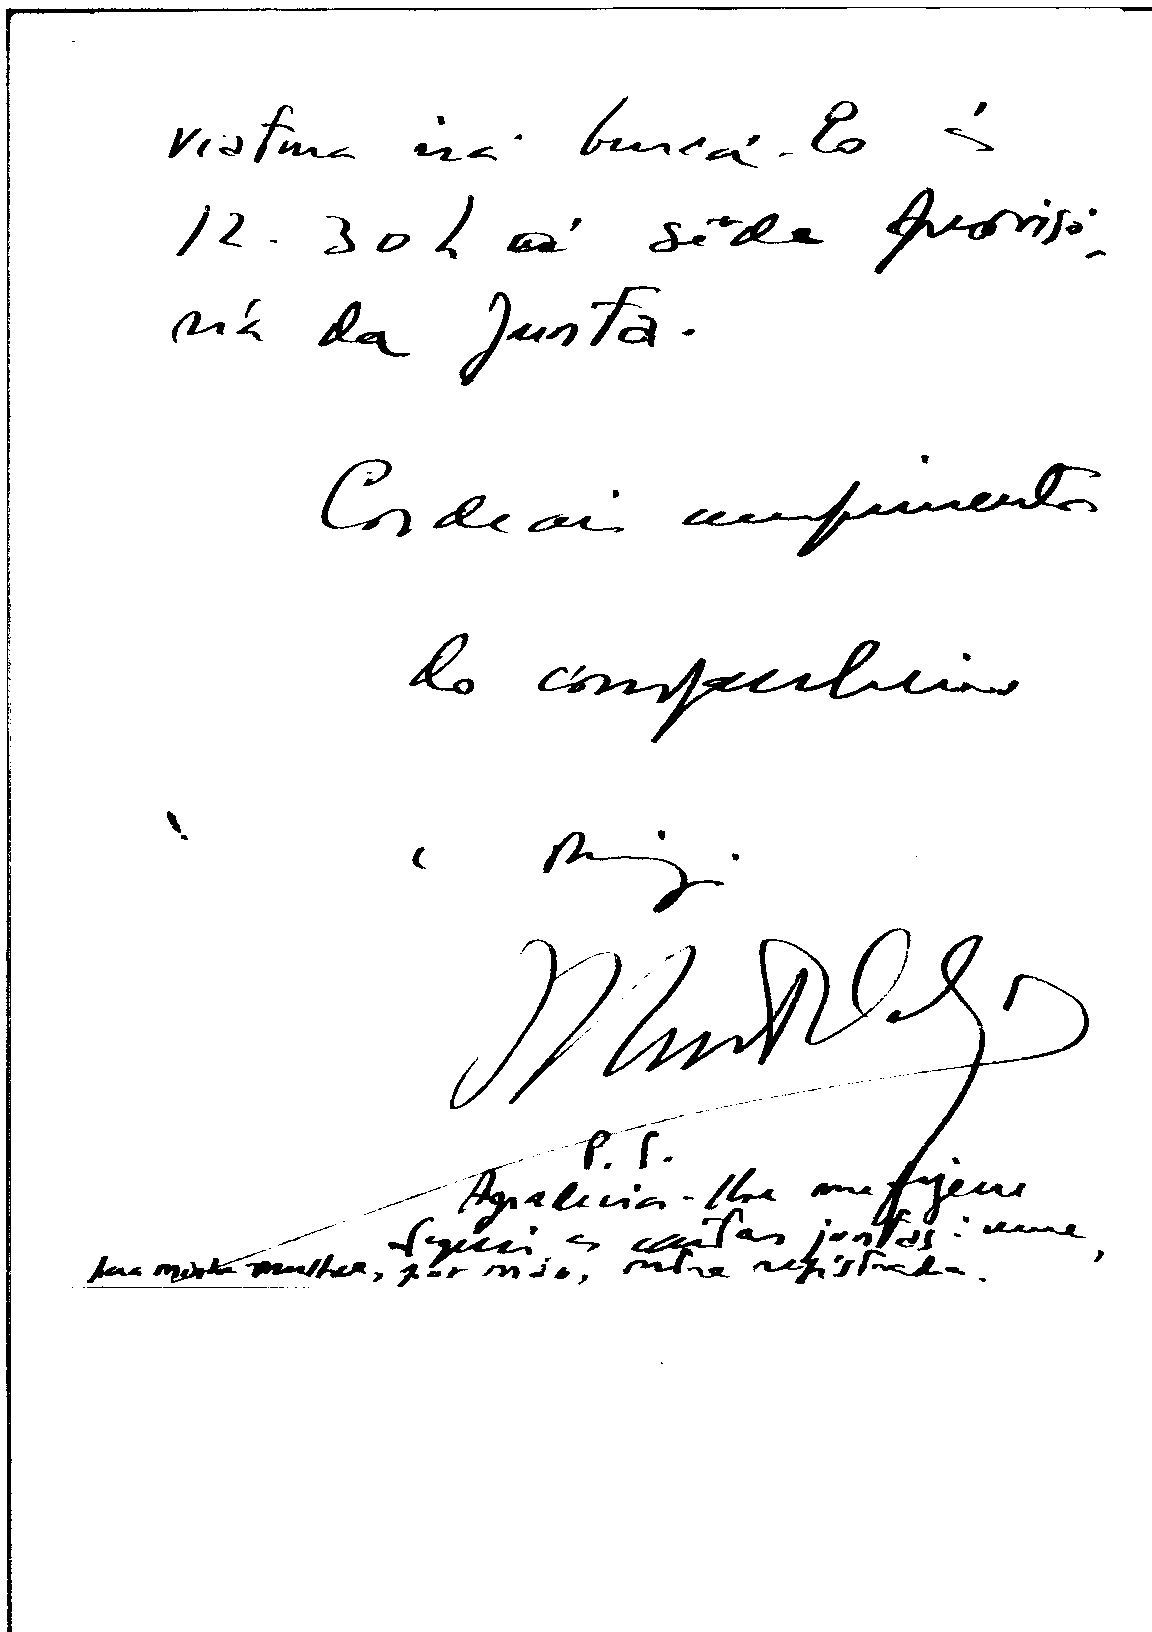 viatura irá buscá-lo às
12.30h à séde provisó-
ria da Junta.
Cordeais cumprimentos
do companheiro
e amigo
P.S.
Agradecia-lhe me fizesse
seguir as cartas juntas: uma,
para minha mulher, por mão, outra registrada.